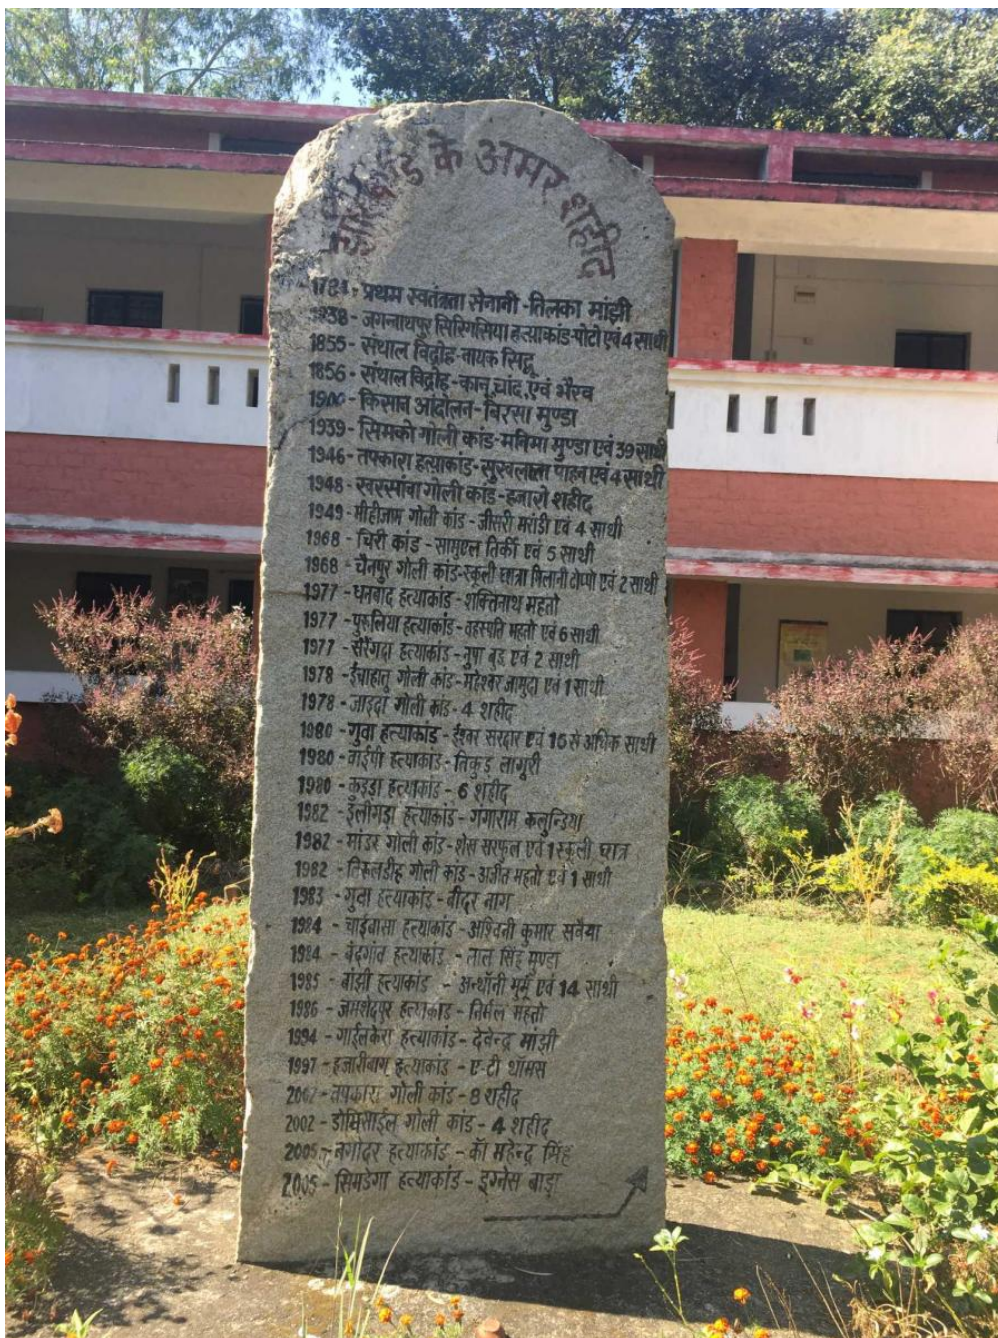 झारखंड के अमर शहीद
1784 - प्रथम स्वतंत्रता सेनानी - तिलका मांझी
1838 - जगनाथपुर सिरिंगसिया हत्याकांड - पोटो एवं 4 साथी
1855 - संथाल विद्रोह - नायक सिद्धू
1856 - संथाल विद्रोह - कानू, चांद, एवं भैरव
1900 - किसान आंदोलन - बिरसा मुण्डा
1939 - सिमको गोली कांड - मनिमा मुण्डा एवं 39 साथी
1946 - तपकारा हत्याकांड - सुखलाला पाहन एवं 4 साथी
1948 - खरसांवा गोली कांड - हजारो शहीद
1949 - मीहीजाम गोली कांड - जीसरी मरांडी एवं 4 साथी
1968 - चिरी कांड - सामुएल तिर्की एवं 5 साथी
1968 - चैनपुर गोली कांड - स्कूली छात्रा गिलानी टोप्पो एवं 2 साथी
1977 - धनबाद हत्याकांड - शक्तिनाथ महतो
1977 - पुरुलिया हत्याकांड - वहस्पति महतो एवं 6 साथी
1977 - सेरेंगदा हत्याकांड - नुपा बुड एवं 2 साथी
1978 - ईचाहातु गोली कांड - महेश्वर जामुदा एवं 1 साथी
1978 - जाइदा गोली कांड - 4 शहीद
1980 - गुवा हत्याकांड - ईश्वर सरदार एवं 16 से अधिक साथी
1980 - वाईपी हत्याकांड - तिकुड लागुरी
1980 - कुइडा हत्याकांड - 6 शहीद
1982 - ईलीगड़ा हत्याकांड - गंगाराम कलुन्डिया
1982 - मांडर गोली कांड - शेख सरफुल एवं 1 स्कूली छात्र
1982 - तिरुलडीह गोली कांड - अजीत महतो एवं 1 साथी
1983 - गुवा हत्याकांड - बीदुर नाग
1984 - चाईबासा हत्याकांड - अश्विनी कुमार सवैया
1984 - बंदगांव हत्याकांड - लाल सिंह मुण्डा
1985 - बांझी हत्याकांड - अन्थॉनी मुर्मू एवं 14 साथी
1986 - जमशेदपुर हत्याकांड - निर्मल महतो
1994 - गाईलकेरा हत्याकांड - देवेन्द्र मांझी
1997 - हजारीबाग हत्याकांड - ए टी थॉमस
तपकारा गोली कांड - 8 शहीद
2002 - डोमिसाईल गोली कांड - 4 शहीद
2005 - बगोदर हत्याकांड - कॉ महेन्द्र सिंह
2005 - सिमडेगा हत्याकांड - इग्नेस बाड़ा